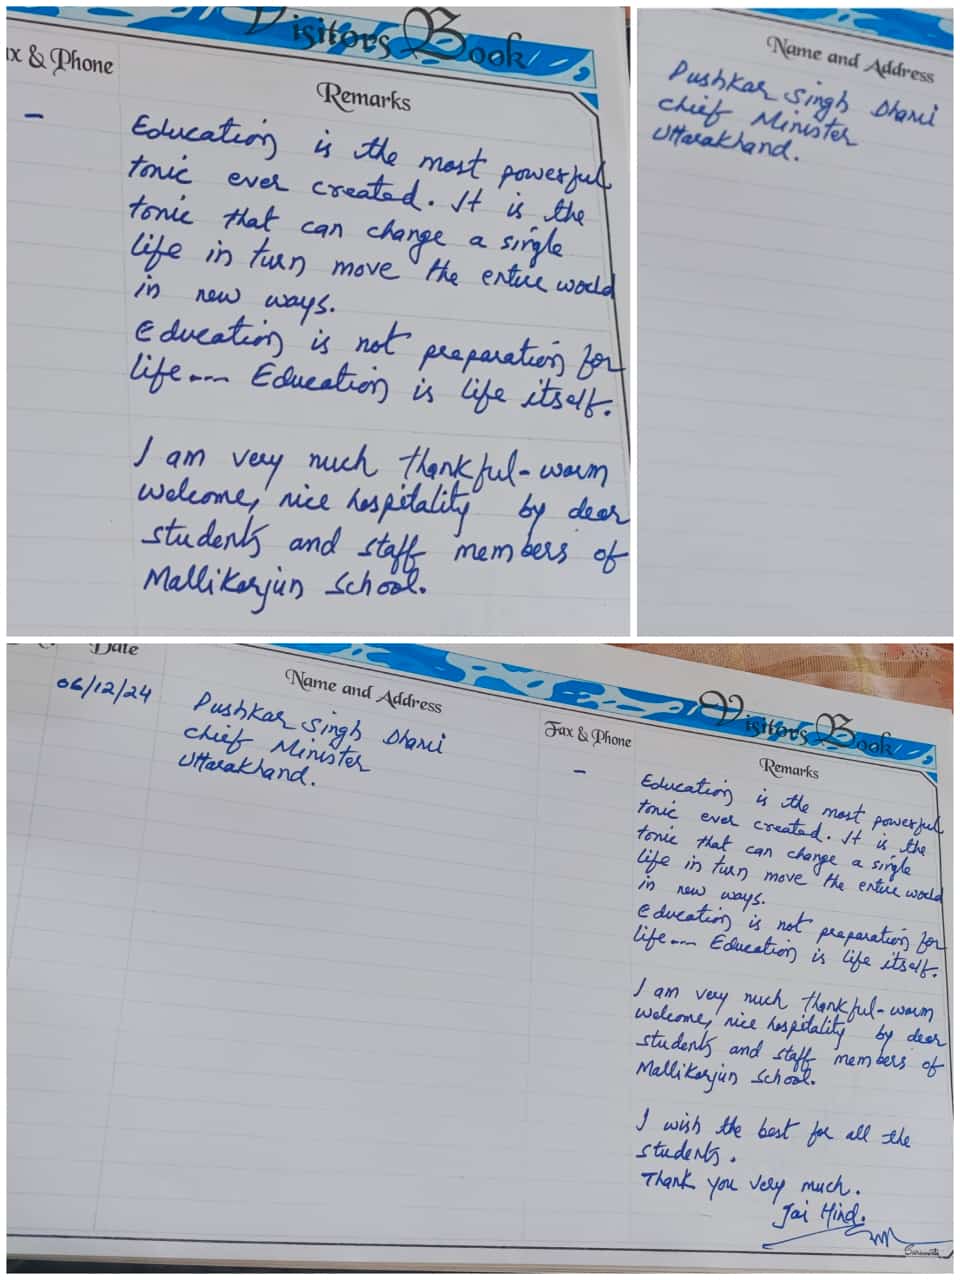 Visitors Book
ax & Phone
Remarks
-
Education is the most powerful
tonic ever created. It is the
tonic that can change a single
life in turn move the entire world
in new ways.
Education is not preparation for
life---- Education is life itself.
I am very much thankful-warm
welcome, nice hospitality by dear
students and staff members of
Mallikarjun School.
Name and Address
Pushkar Singh Dhami
Chief Minister
Uttarakhand.
Date
Name and Address
Fax & Phone
Visitors Book
Remarks
06/12/24
Pushkar Singh Dhami
Chief Minister
Uttarakhand.
-
Education is the most powerful
tonic ever created. It is the
tonic that can change a single
life in turn move the entire world
in new ways.
Education is not preparation for
life---- Education is life itself.
I am very much thankful-warm
welcome, nice hospitality by dear
students and staff members of
Mallikarjun School.
I wish the best for all the
students.
Thank you very much.
Jai Hind.